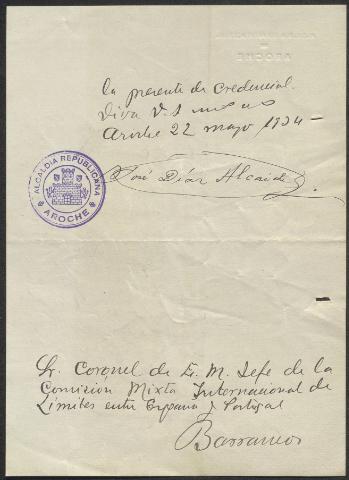 la presente de credencial.
Viva V. S muchos
Aroche 22 mayo 1934 -
José Díaz Alcaide
ALCALDIA REPUBLICANA
AROCHE
Sr. Coronel de E. M. Jefe de la
Comisión Mixta Internacional de
Límites entre España y Portugal
Barrancos